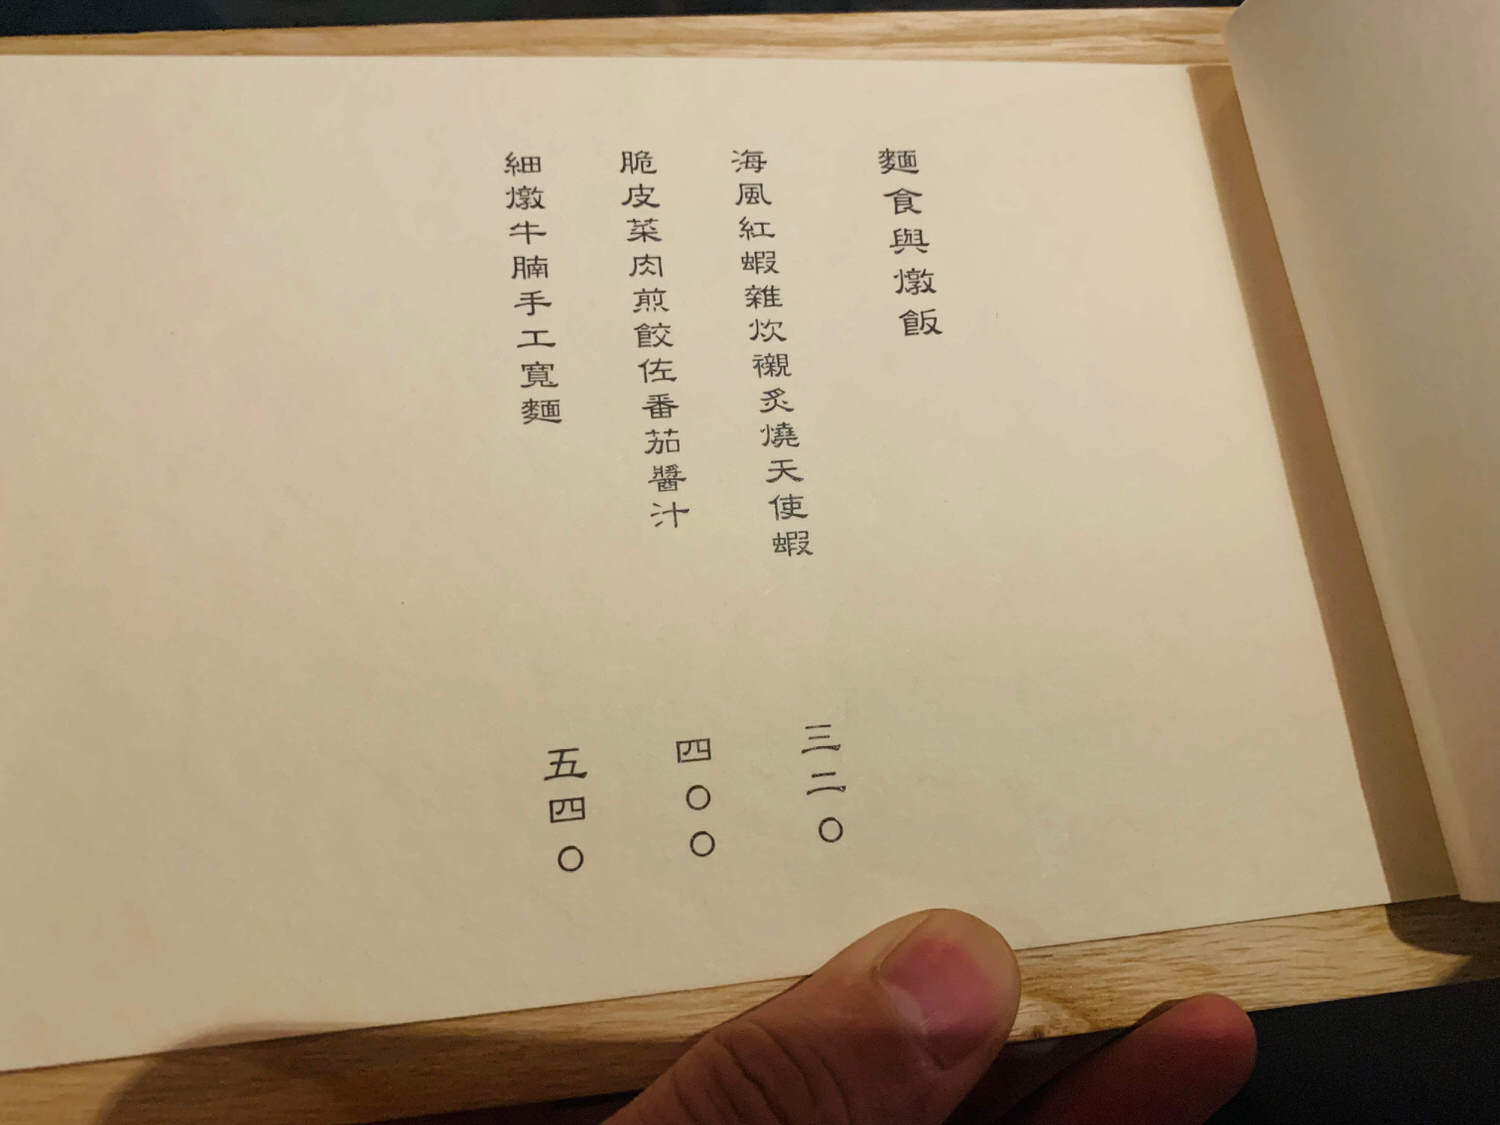 麵食與燉飯
海風紅蝦雜炊襯炙燒天使蝦
三二〇
脆皮菜肉煎餃佐番茄醬汁
四〇〇
細燉牛腩手工寬麵
五四〇